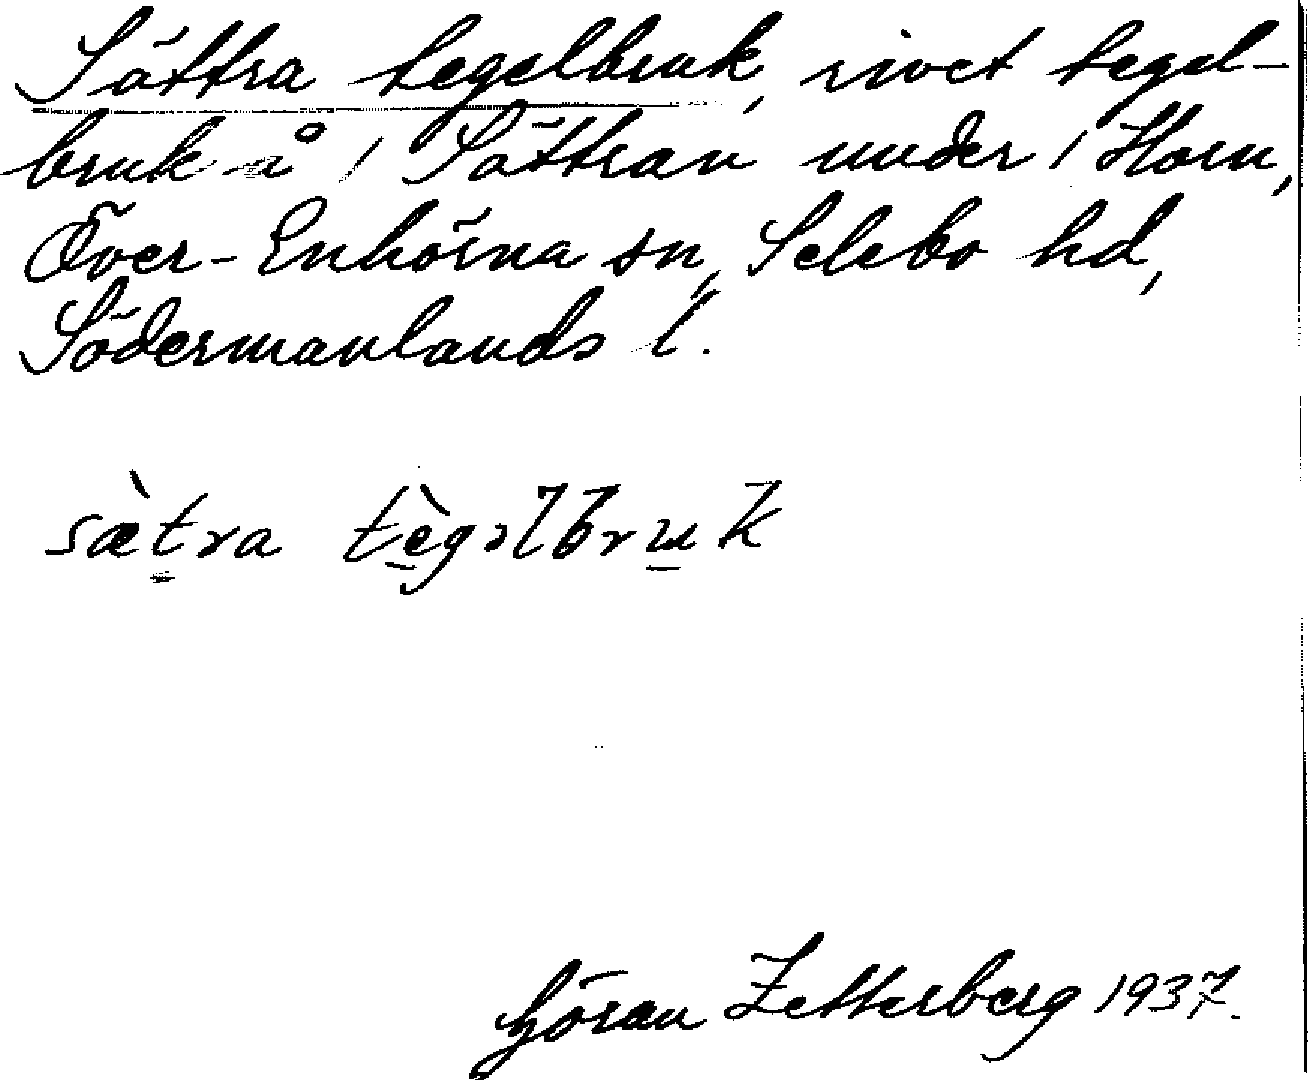 Sättra tegelbruk, rivet tegel-
bruk å / Sättran under / Horn,
Över-Enhörna sn, Selebo hd,
Södermanlands l.
sæ̀t̳ra tè̲gəlbru̲k
Göran Zetterberg 1937.